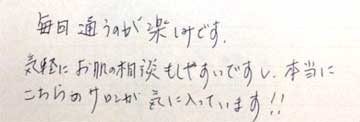 毎回通うのが楽しみです。
気軽にお肌の相談もしやすいですし、本当に
こちらのサロンが気に入っています!!